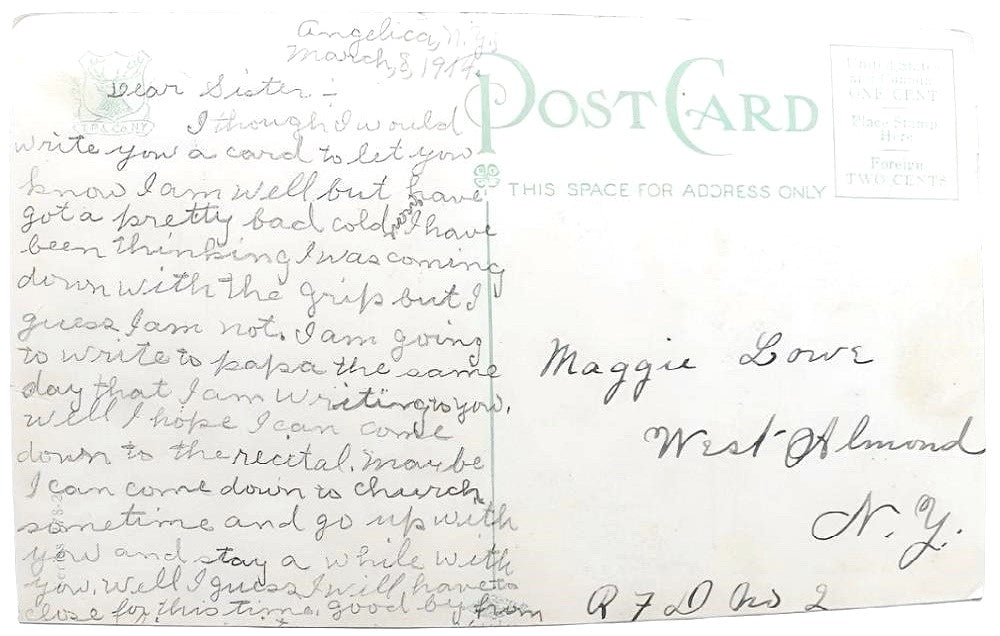 Angelica, N.Y.,
March, 8, 1914.
Dear Sister :-
I though I would
write you a card to let you
know I am well but have
got a pretty bad cold, I have
been thinking I was coming
down with the grip but I
guess I am not. I am going
to write to papa the same
day that I am writing to you.
Well I hope I can come
down to the recital. Maybe
I can come down to church
sometime and go up with
you and stay a while with
you. Well I guess I will have to
close for this time. good by from
POST CARD
THIS SPACE FOR ADDRESS ONLY
United States
and Canada
ONE CENT
Place Stamp
Here
Foreign
TWO CENTS
Maggie Lowe
West Almond
N. Y.
R F D No 2